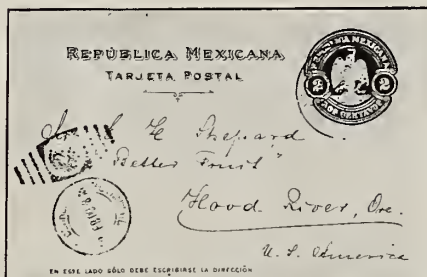 REPÚBLICA MEXICANA
TARJETA POSTAL
ECONOMIA MEXICANA
2 2
DOS CENTAVOS
E H Shepard
"Better Fruit"
Hood River, Ore.
U. S. America
EN ESTE LADO SÓLO DEBE ESCRIBIRSE LA DIRECCIÓN